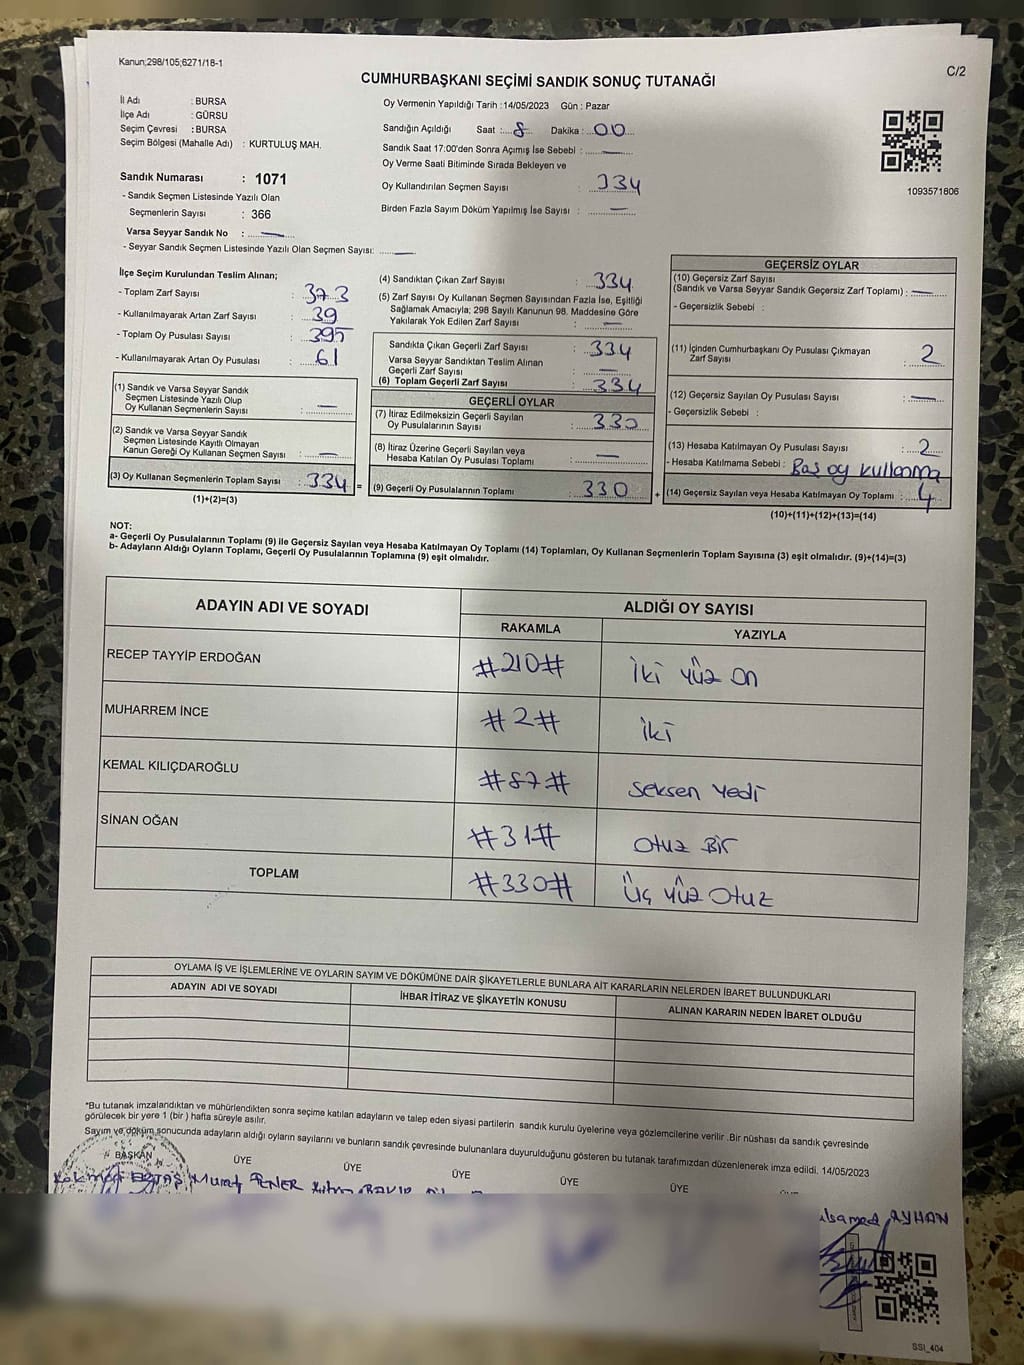 Kanun;298/105;6271/18-1
C/2
CUMHURBAŞKANI SEÇİMİ SANDIK SONUÇ TUTANAĞI
İl Adı : BURSA
İlçe Adı : GÜRSU
Seçim Çevresi : BURSA
Seçim Bölgesi (Mahalle Adı) : KURTULUŞ MAH.
Sandık Numarası : 1071
- Sandık Seçmen Listesinde Yazılı Olan
Seçmenlerin Sayısı : 366
Varsa Seyyar Sandık No : —
- Seyyar Sandık Seçmen Listesinde Yazılı Olan Seçmen Sayısı: —
Oy Vermenin Yapıldığı Tarih :14/05/2023 Gün : Pazar
Sandığın Açıldığı Saat : 8 Dakika : 00
Sandık Saat 17:00'den Sonra Açımış İse Sebebi : —
Oy Verme Saati Bitiminde Sırada Bekleyen ve
Oy Kullandırılan Seçmen Sayısı : 334
Birden Fazla Sayım Döküm Yapılmış İse Sayısı : —
1093571806
İlçe Seçim Kurulundan Teslim Alınan;
- Toplam Zarf Sayısı : 373
- Kullanılmayarak Artan Zarf Sayısı : 39
- Toplam Oy Pusulası Sayısı : 395
- Kullanılmayarak Artan Oy Pusulası : 61
(1) Sandık ve Varsa Seyyar Sandık
Seçmen Listesinde Yazılı Olup
Oy Kullanan Seçmenlerin Sayısı : —
(2) Sandık ve Varsa Seyyar Sandık
Seçmen Listesinde Kayıtlı Olmayan
Kanun Gereği Oy Kullanan Seçmen Sayısı : —
(3) Oy Kullanan Seçmenlerin Toplam Sayısı : 334 =
(1)+(2)=(3)
(4) Sandıktan Çıkan Zarf Sayısı : 334
(5) Zarf Sayısı Oy Kullanan Seçmen Sayısından Fazla İse, Eşitliği
Sağlamak Amacıyla; 298 Sayılı Kanunun 98. Maddesine Göre
Yakılarak Yok Edilen Zarf Sayısı : —
Sandıkta Çıkan Geçerli Zarf Sayısı : 334
Varsa Seyyar Sandıktan Teslim Alınan
Geçerli Zarf Sayısı : —
(6) Toplam Geçerli Zarf Sayısı : 334
GEÇERLİ OYLAR
(7) İtiraz Edilmeksizin Geçerli Sayılan
Oy Pusulalarının Sayısı : 330
(8) İtiraz Üzerine Geçerli Sayılan veya
Hesaba Katılan Oy Pusulası Toplamı : —
(9) Geçerli Oy Pusulalarının Toplamı : 330 +
GEÇERSİZ OYLAR
(10) Geçersiz Zarf Sayısı
(Sandık ve Varsa Seyyar Sandık Geçersiz Zarf Toplamı) : —
- Geçersizlik Sebebi :
(11) İçinden Cumhurbaşkanı Oy Pusulası Çıkmayan
Zarf Sayısı : 2
(12) Geçersiz Sayılan Oy Pusulası Sayısı : —
- Geçersizlik Sebebi :
(13) Hesaba Katılmayan Oy Pusulası Sayısı : 2
- Hesaba Katılmama Sebebi : Boş oy kullanma
(14) Geçersiz Sayılan veya Hesaba Katılmayan Oy Toplamı : 4
(10)+(11)+(12)+(13)=(14)
NOT:
a- Geçerli Oy Pusulalarının Toplamı (9) ile Geçersiz Sayılan veya Hesaba Katılmayan Oy Toplamı (14) Toplamları, Oy Kullanan Seçmenlerin Toplam Sayısına (3) eşit olmalıdır. (9)+(14)=(3)
b- Adayların Aldığı Oyların Toplamı, Geçerli Oy Pusulalarının Toplamına (9) eşit olmalıdır.
ADAYIN ADI VE SOYADI ALDIĞI OY SAYISI
RAKAMLA YAZIYLA
RECEP TAYYİP ERDOĞAN #210# İki yüz on
MUHARREM İNCE #2# İki
KEMAL KILIÇDAROĞLU #87# Seksen Yedi
SİNAN OĞAN #31# Otuz Bir
TOPLAM #330# Üç yüz Otuz
OYLAMA İŞ VE İŞLEMLERİNE VE OYLARIN SAYIM VE DÖKÜMÜNE DAİR ŞİKAYETLERLE BUNLARA AİT KARARLARIN NELERDEN İBARET BULUNDUKLARI
ADAYIN ADI VE SOYADI İHBAR İTİRAZ VE ŞİKAYETİN KONUSU ALINAN KARARIN NEDEN İBARET OLDUĞU
*Bu tutanak imzalandıktan ve mühürlendikten sonra seçime katılan adayların ve talep eden siyasi partilerin sandık kurulu üyelerine veya gözlemcilerine verilir .Bir nüshası da sandık çevresinde
görülecek bir yere 1 (bir ) hafta süreyle asılır.
Sayım ve döküm sonucunda adayların aldığı oyların sayılarını ve bunların sandık çevresinde bulunanlara duyurulduğunu gösteren bu tutanak tarafımızdan düzenlenerek imza edildi. 14/05/2023
BAŞKAN ÜYE ÜYE ÜYE ÜYE ÜYE
Murat
AYHAN
SSI_404